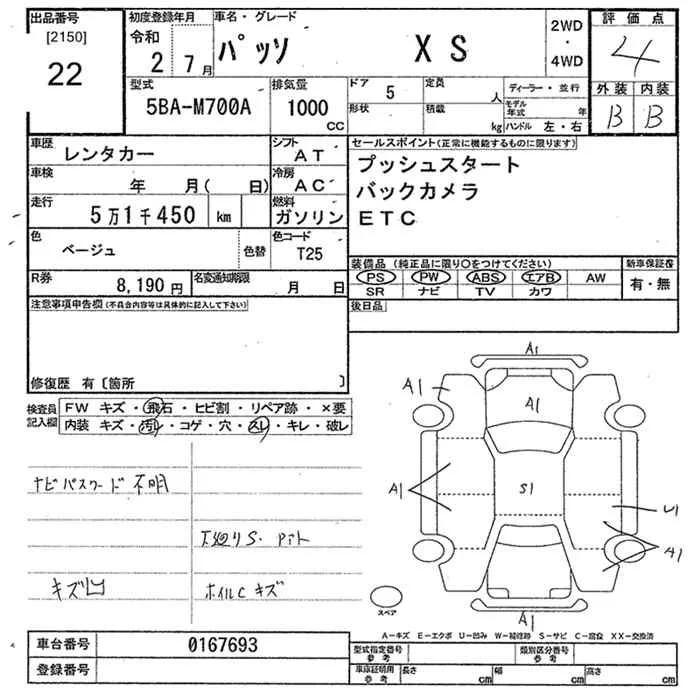 出品番号
[2150]
22
初度登録年月
令和
2 7月
車名・グレード
パッソ X S
2WD
・
4WD
評価点
4
外装 内装
B B
型式
5BA-M700A
排気量
1000
CC
ドア
5
定員
人
形状
積載
kg
ディーラー・並行
モデル年式 年
ハンドル 左・右
車歴
レンタカー
シフト
AT
車検
年 月( 日)
冷房
AC
走行
5万1千450 km
燃料
ガソリン
色
ベージュ
色替
色コード
T25
R券
8,190 円
名変通知期限
月 日
セールスポイント(正常に機能するものに限ります)
プッシュスタート
バックカメラ
ETC
装備品 (純正品に限り○をつけてください)
PS PW ABS エアB AW
SR ナビ TV カワ
新車保証書
有・無
後日品
注意事項申告欄(不具合内容等は具体的に記入して下さい)
修復歴 有〔箇所 〕
検査員記入欄
FW キズ・飛石・ヒビ割・リペア跡・×要
内装 キズ・汚レ・コゲ・穴・スレ・キレ・破レ
ナビパスワード不明
下廻りS・
キズ凹
ホイルCキズ
A1
A1
A1
A1
S1
U1
A1
A1
スペア
A-キズ E-エクボ U-凹み W-補修跡 S-サビ C-腐食 XX-交換済
車台番号
0167693
登録番号
型式指定番号
参考
類別区分番号
参考
車庫証明用
参考
長さ cm
幅 cm
高さ cm